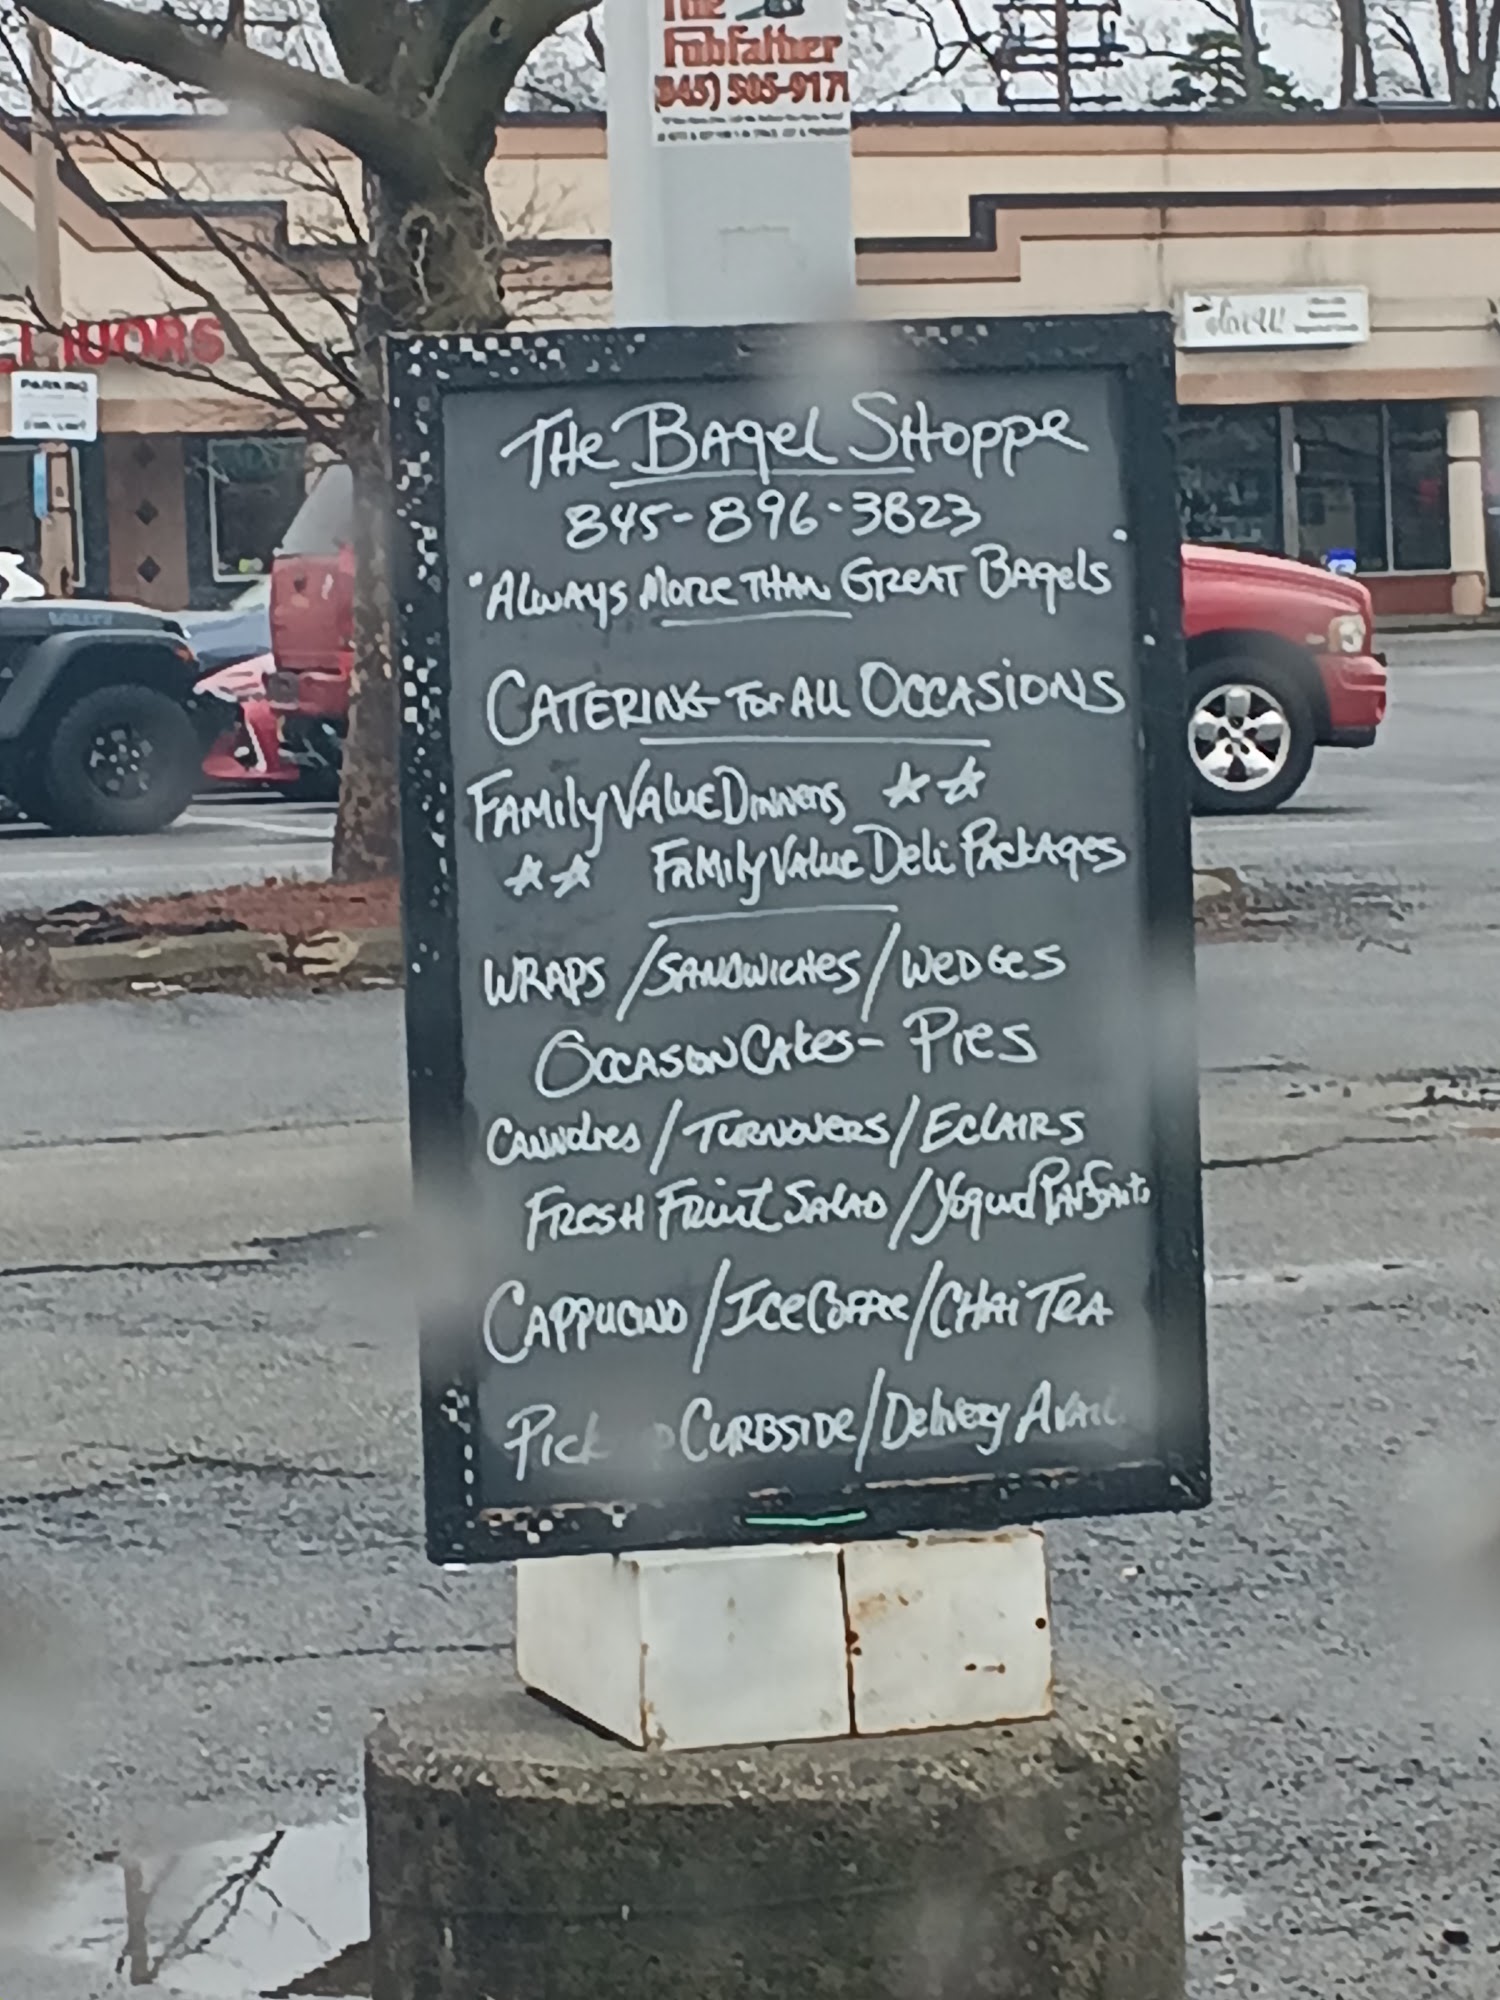 The
Fobfather
(845) 505-9171
LIQUORS
PARKING
THe BAgel SHoppe
845-896-3823
"Always More THAN GREAT BAgels"
CATERING For ALL OCCASiONS
FAMily VAlue Dinners ☆☆
☆☆ FAMily VAlue Deli PACkAges
WRAPS / SANDWICHES / WeDGeS
OCCASION CAkes - Pies
CANNOLIES / TURNOVERS / ECLAIRS
FRESH FRUIT SALAD / YOGURT PARFAITS
CAPPUCINO / ICE COFFEE / CHAI TEA
Pick CURBSIDE / Delivery AVAIL